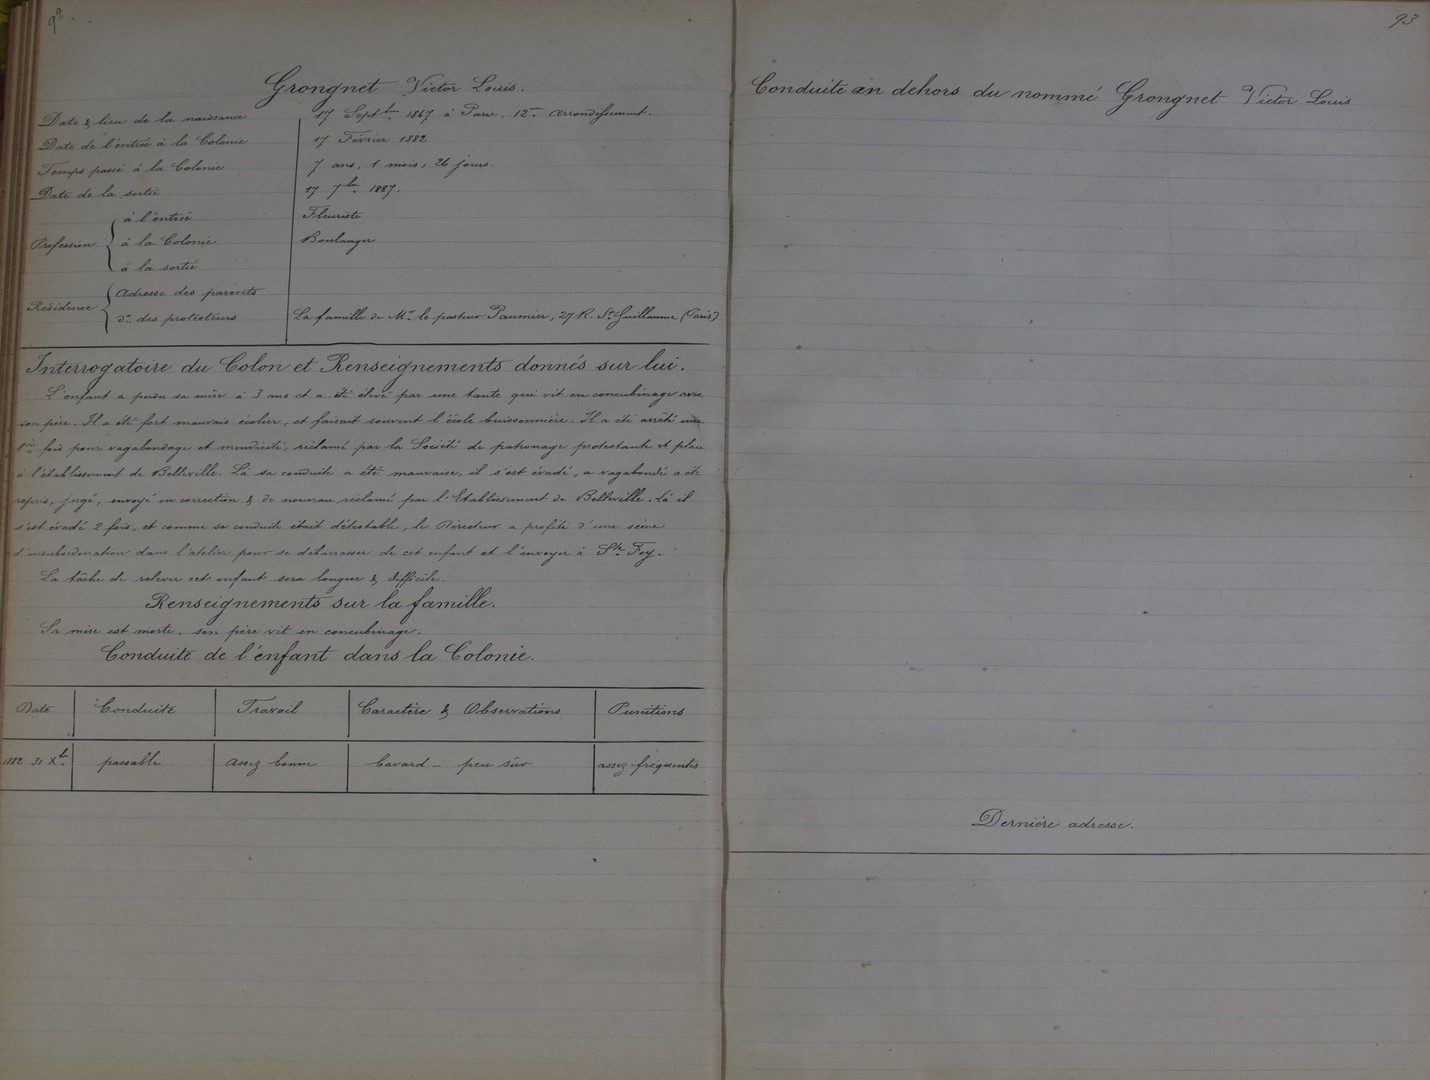 92
Grongnet Victor Louis.
Date & lieu de la naissance 17 Septbre 1867 à Paris, 12e arrondissement.
Date de l'entrée à la Colonie 17 Février 1882
Temps passé à la Colonie 7 ans, 1 mois, 26 jours.
Date de la sortie 17 7bre 1887.
Profession
à l'entrée Fleuriste
à la Colonie Boulanger
à la sortie
Résidence
Adresse des parents
do des protecteurs La famille de Mr le pasteur Paumier, 27 R. St Guillaume (Paris)
Interrogatoire du Colon et Renseignements donnés sur lui.
L'enfant a perdu sa mère à 3 ans et a été élevé par une tante qui vit en concubinage avec
son père. Il a été fort mauvais écolier, et faisait souvent l'école buissonnière. Il a été arrêté une
1ère fois pour vagabondage et mendicité, réclamé par la Société de patronage protestante et placé
à l'établissement de Belleville. Là sa conduite a été mauvaise, il s'est évadé, a vagabondé a été
repris, jugé, envoyé en correction & de nouveau réclamé par l'Etablissement de Belleville. Là il
s'est évadé 2 fois, et comme sa conduite était détestable, le Directeur a profité d'une scène
d'insubordination dans l'atelier pour se débarrasser de cet enfant et l'envoyer à Ste Foy.
La tâche de relever cet enfant sera longue & difficile.
Renseignements sur la famille.
Sa mère est morte, son père vit en concubinage.
Conduite de l'enfant dans la Colonie.
Date Conduite Travail Caractère & Observations Punitions
1882 31 Xbre passable assez bonne bavard - peu sûr assez fréquentes
93
Conduite en dehors du nommé Grongnet Victor Louis
Dernière adresse.